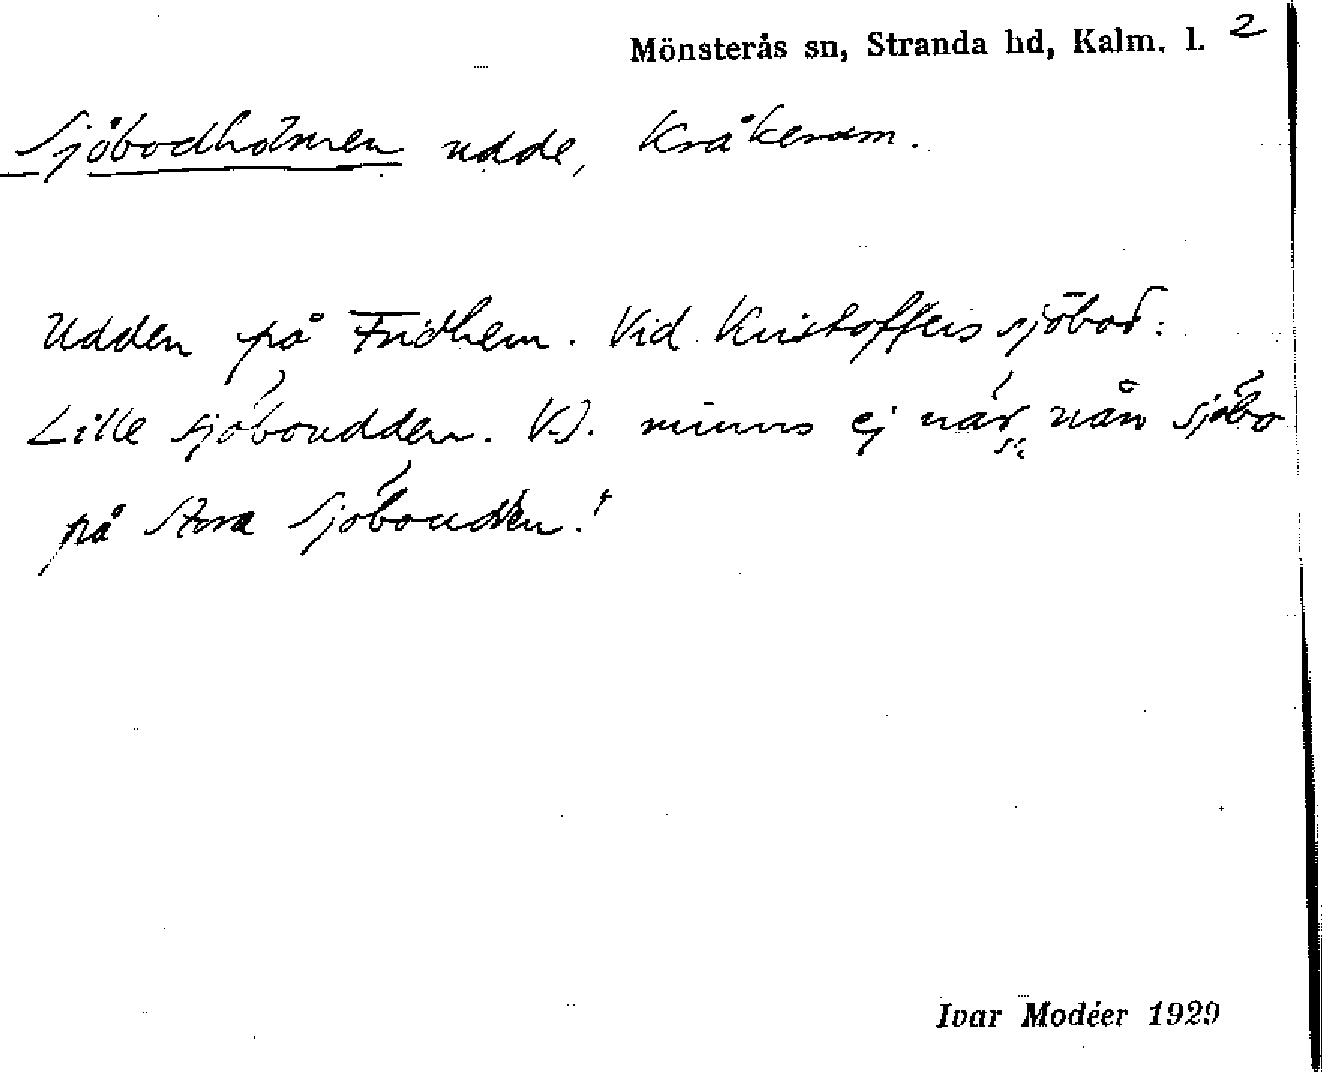 Mönsterås sn, Stranda hd, Kalm. l. 2
Sjöbodholmen udde, Kråkerum.
Udden på Fridhem. Vid Kristoffers sjöbod:
Lille sjöboudden. minns ej när nån sjöbo
på Stora Sjöboudden!
Ivar Modéer 1929